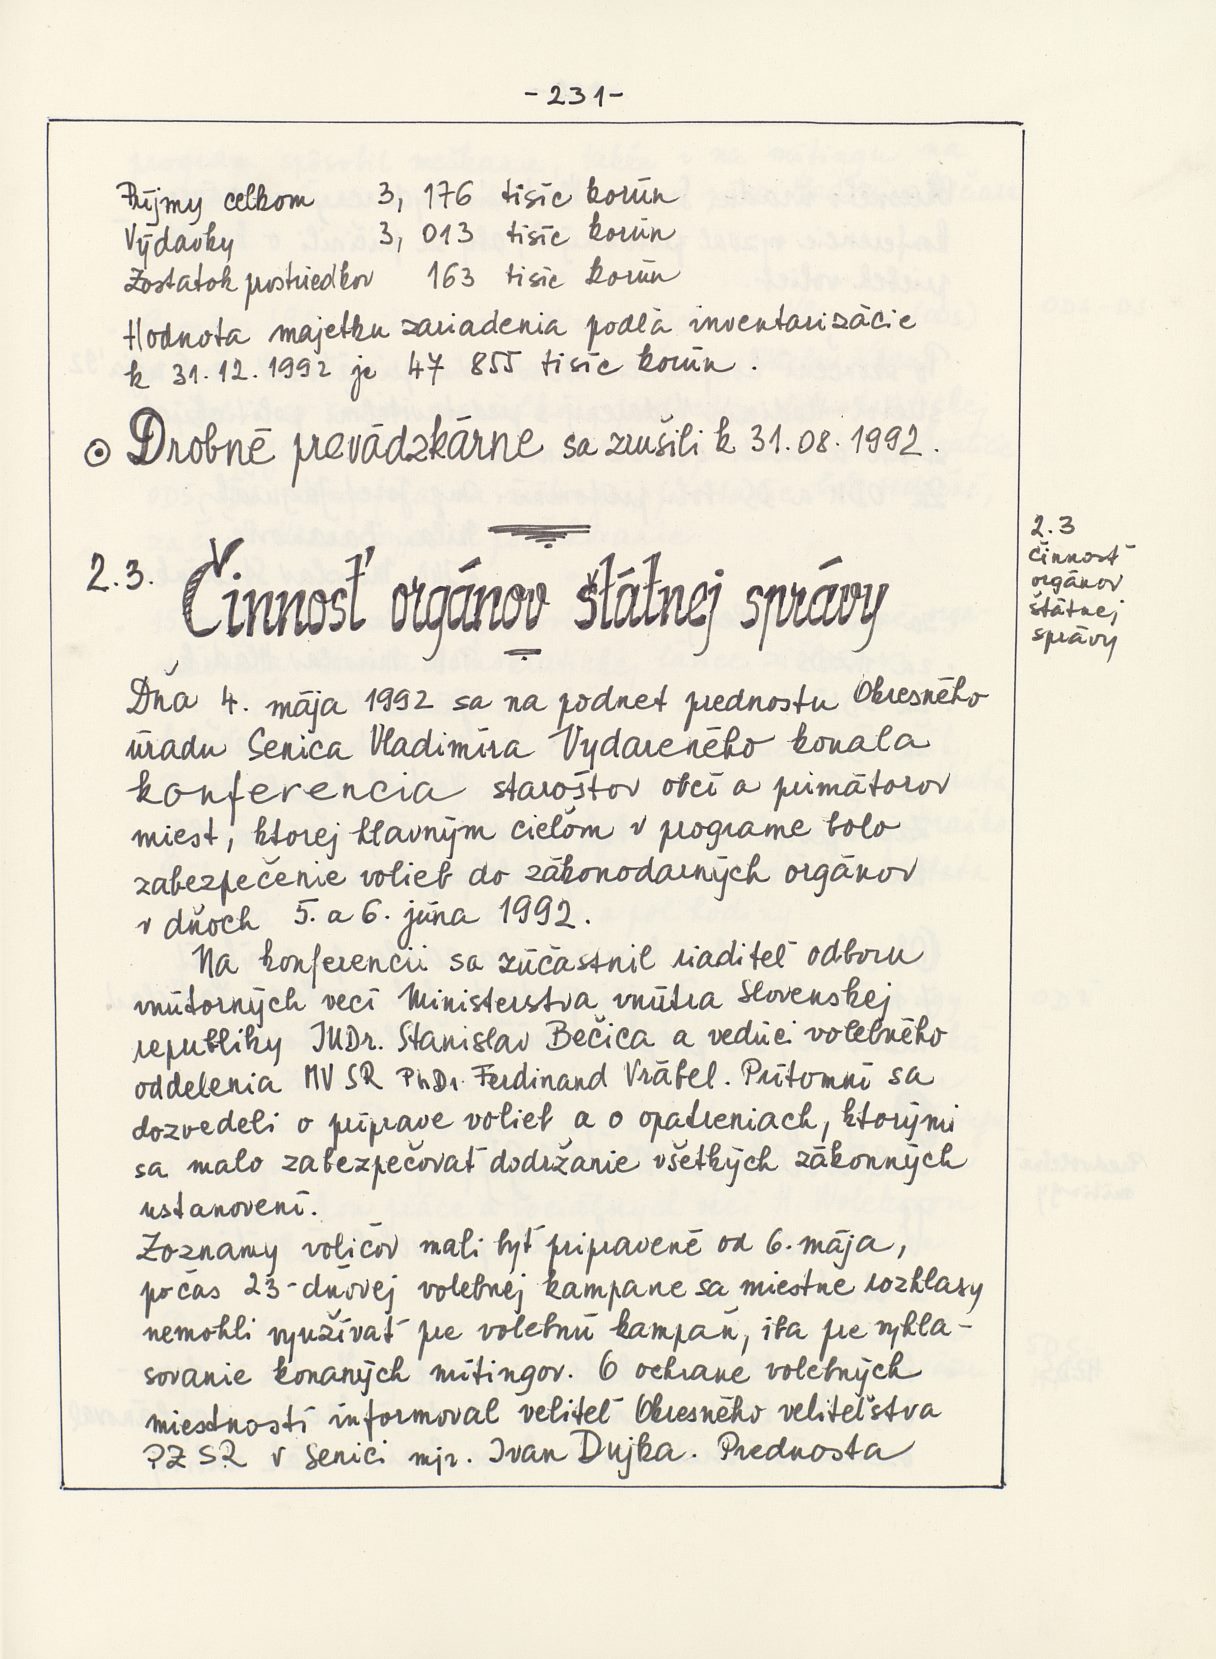 - 231 -
Príjmy celkom 3, 176 tisíc korún
Výdavky 3, 013 tisíc korún
Zostatok prostriedkov 163 tisíc korún
Hodnota majetku zariadenia podľa inventarizácie
k 31.12.1992 je 47 855 tisíc korún.
⊙ Drobné prevádzkárne sa zrušili k 31.08.1992.
2.3. Činnosť orgánov štátnej správy
2.3
činnosť
orgánov
štátnej
správy
Dňa 4. mája 1992 sa na podnet prednostu Okresného
úradu Senica Vladimíra Vydareného konala
konferencia starostov obcí a primátorov
miest, ktorej hlavným cieľom v programe bolo
zabezpečenie volieb do zákonodarných orgánov
v dňoch 5. a 6. júna 1992.
Na konferencii sa zúčastnil riaditeľ odboru
vnútorných vecí Ministerstva vnútra Slovenskej
republiky JUDr. Stanislav Bečica a vedúci volebného
oddelenia MV SR PhDr. Ferdinand Vrábel. Prítomní sa
dozvedeli o príprave volieb a o opatreniach, ktorými
sa malo zabezpečovať dodržanie všetkých zákonných
ustanovení.
Zoznamy voličov mali byť pripravené od 6. mája,
počas 23-dňovej volebnej kampane sa miestne rozhlasy
nemohli využívať pre volebnú kampaň, iba pre vyhla-
sovanie konaných mítingov. O ochrane volebných
miestností informoval veliteľ Okresného veliteľstva
PZ SR v Senici mjr. Ivan Dujka. Prednosta